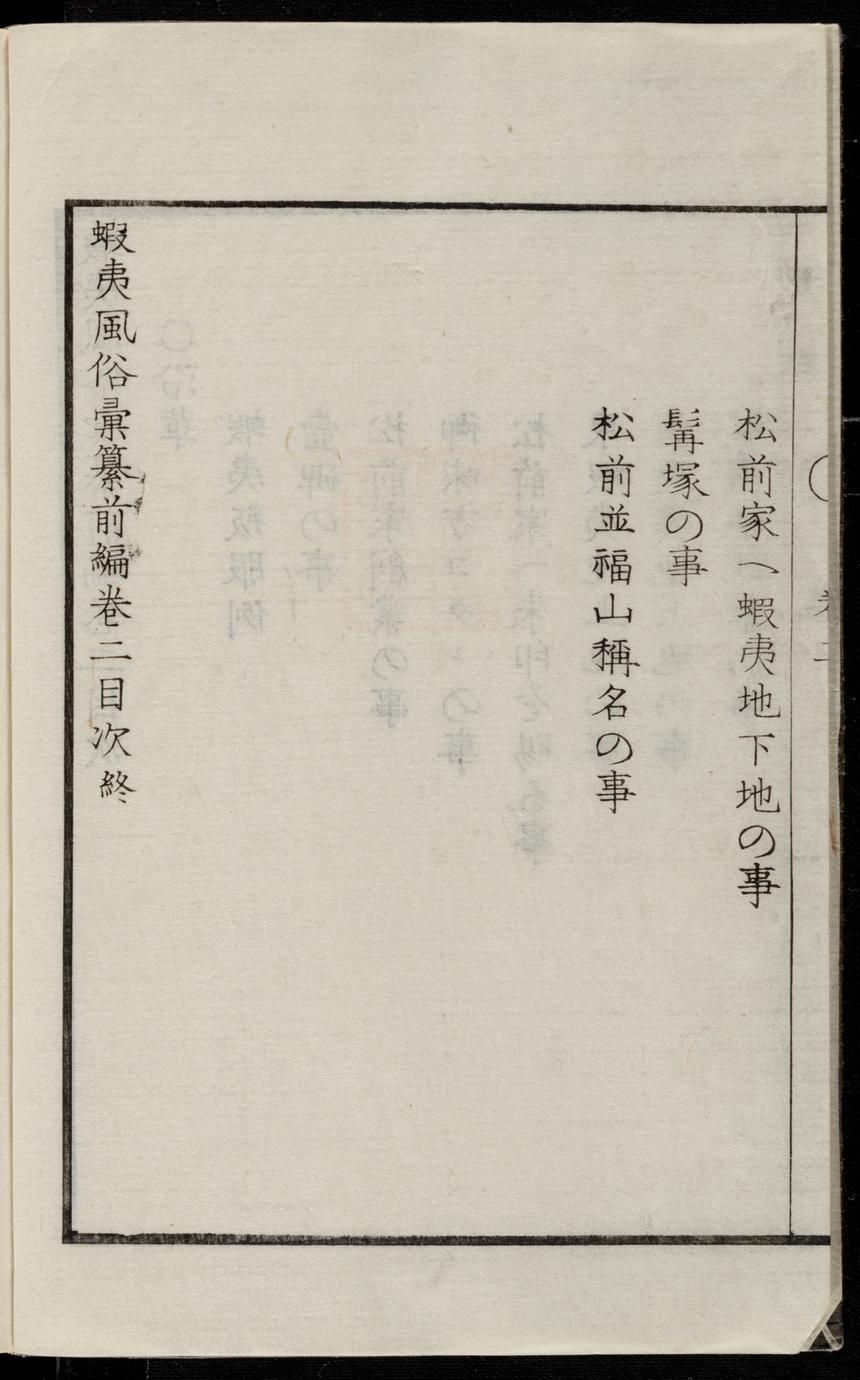 松前家へ蝦夷地下地の事
髯塚の事
松前並福山稱名の事
蝦夷風俗彙纂前編卷二目次終